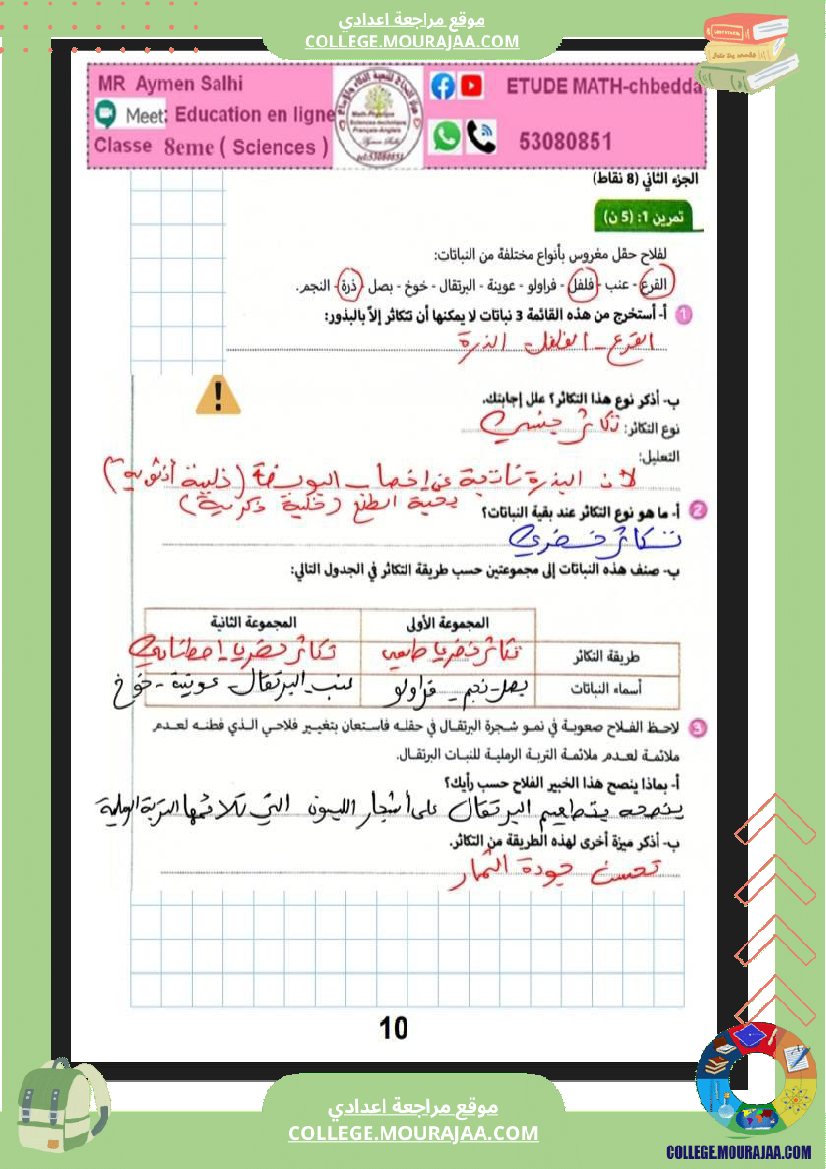 موقع مراجعة اعدادي
COLLEGE.MOURAJAA.COM
MR Aymen Salhi
Meet: Education en ligne
Classe 8eme ( Sciences )
Math-Physique
Sciences-technique
Français-Anglais
Aymen Salhi
tel:53080851
ETUDE MATH-chbedda
53080851
الجزء الثاني (8 نقاط)
تمرين 1: (5 ن)
لفلاح حقل مغروس بأنواع مختلفة من النباتات:
القرع - عنب - فلفل - فراولو - عوينة - البرتقال - خوخ - بصل - ذرة - النجم.
1 أ- أستخرج من هذه القائمة 3 نباتات لا يمكنها أن تتكاثر إلاّ بالبذور:
القرع - الفلفل - الذرة
ب- أذكر نوع هذا التكاثر؟ علل إجابتك.
نوع التكاثر: تكاثر جنسي
التعليل:
لان البذرة ناتجة عن إخصاب البويضة (خلية أنثوية)
بحبة الطلع (خلية ذكرية)
2 أ- ما هو نوع التكاثر عند بقية النباتات؟
تكاثر خضري
ب- صنف هذه النباتات إلى مجموعتين حسب طريقة التكاثر في الجدول التالي:
المجموعة الأولى المجموعة الثانية
طريقة التكاثر تكاثر خضريا طبيعي تكاثر خضريا إصطناعي
أسماء النباتات بصل - نجم - فراولو عنب - البرتقال - عوينة - خوخ
3 لاحظ الفلاح صعوبة في نمو شجرة البرتقال في حقله فاستعان بتغيير فلاحي الذي فطنه لعدم
ملائمة لعدم ملائمة التربة الرملية للنبات البرتقال.
أ- بماذا ينصح هذا الخبير الفلاح حسب رأيك؟
ينصحه بتطعيم البرتقال على أشجار الليمون التي تلائمها التربة الرملية
ب- أذكر ميزة أخرى لهذه الطريقة من التكاثر.
تحسن جودة الثمار
10
موقع مراجعة اعدادي
COLLEGE.MOURAJAA.COM
COLLEGE.MOURAJAA.COM